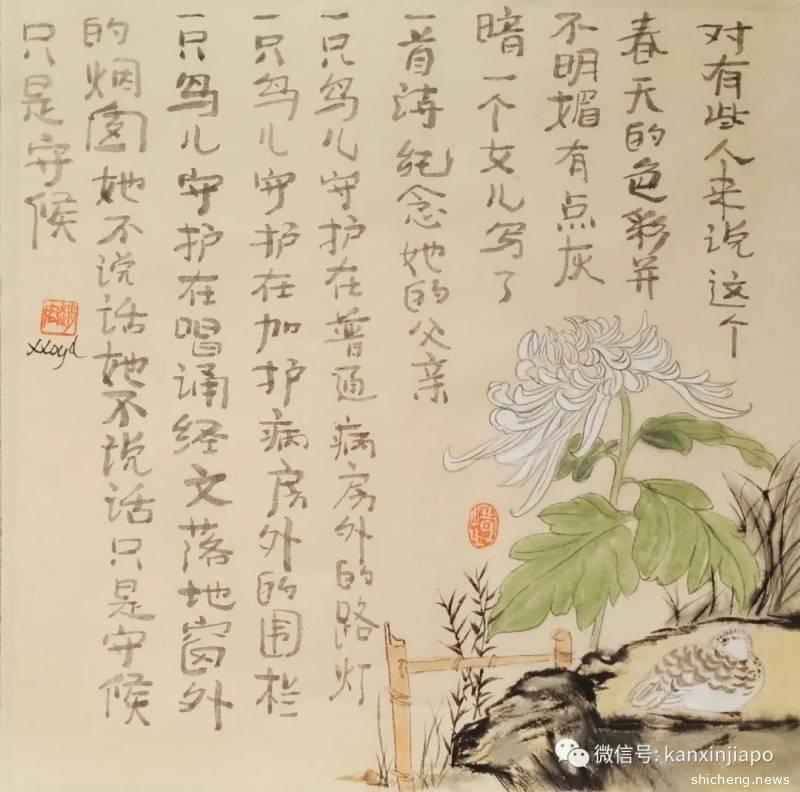 对有些人来说这个
春天的色彩并
不明媚有点灰
暗一个女儿写了
一首诗纪念她的父亲
一只鸟儿守护在普通病房外的路灯
一只鸟儿守护在加护病房外的围栏
一只鸟儿守护在唱诵经文落地窗外
的烟囱她不说话她不说话只是守候
只是守候
微信号: kanxinjiapo
shicheng.news